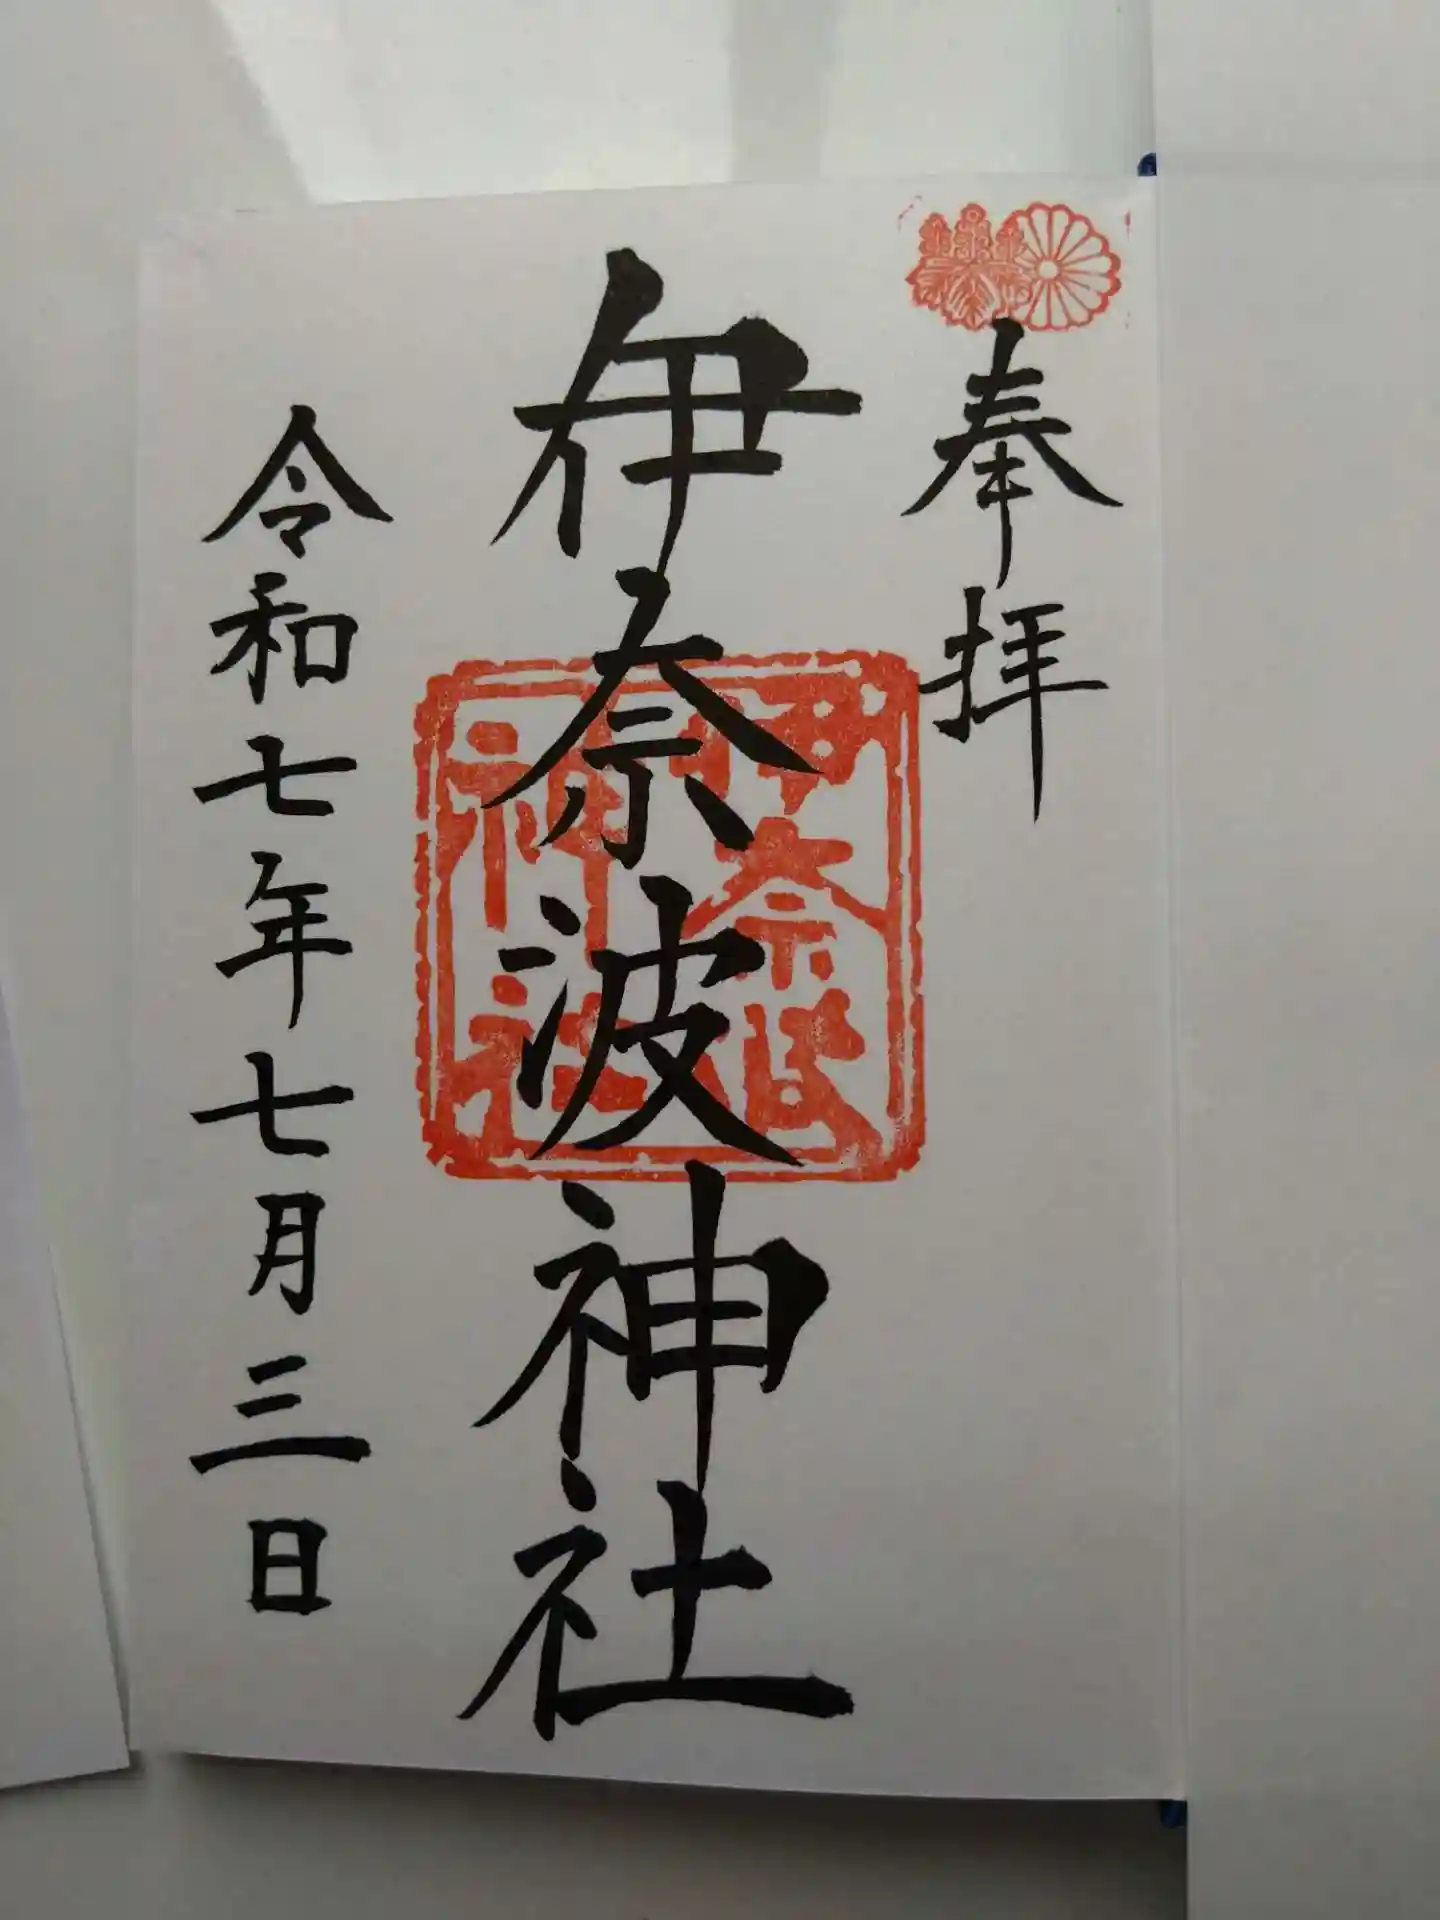 奉拝
伊奈波神社
伊奈波
神社
令和七年七月三日